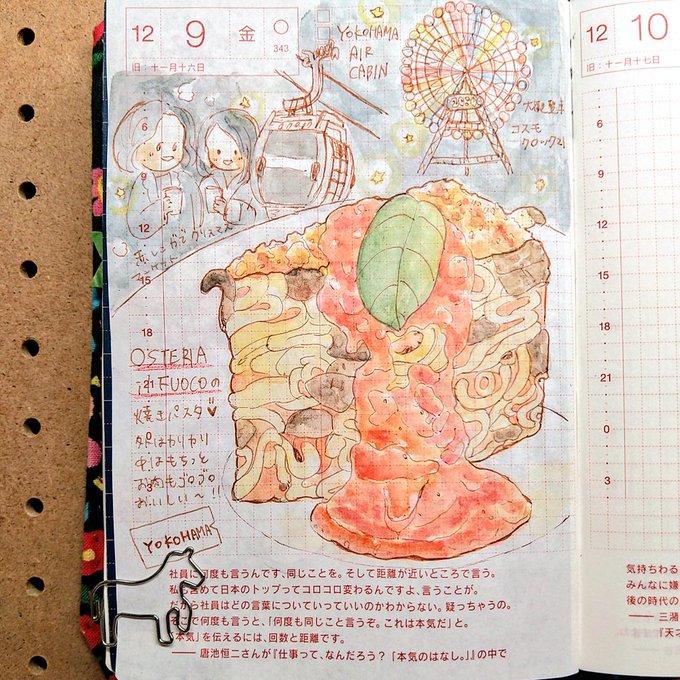 12 9 金 343
旧:十一月十六日
YOKOHAMA
AIR
CABIN
大観覧車
コスモ
クロック21
6
9
12
赤レンガでクリスマス
マーケット
15
18
OSTERIA
il FUOCOの
焼きパスタ♥
外はカリカリ
中はもちっと
お肉もゴロゴロ
おいし〜!!
YOKOHAMA
社員に何度も言うんです、同じことを。そして距離が近いところで言う。
私も含めて日本のトップってコロコロ変わるんですよ、言うことが。
だから社員はどの言葉についていっていいのかわからない。疑っちゃうの。
そこで何度も言うと、「何度も同じこと言うぞ。これは本気だ」と。
「本気」を伝えるには、回数と距離です。
―― 唐池恒二さんが『仕事って、なんだろう?「本気のはなし。」』の中で
12 10
旧:十一月十七日
6
9
12
18
21
0
3
気持ちわる
みんなに嫌
後の時代の
―― 三瀦
『天才